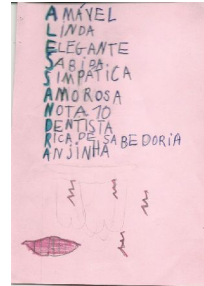 AMÁVEL
LINDA
ELEGANTE
SABIDA
SIMPATICA
AMOROSA
NOTA 10
DENTISTA
RICA DE SABEDORIA
ANJINHA